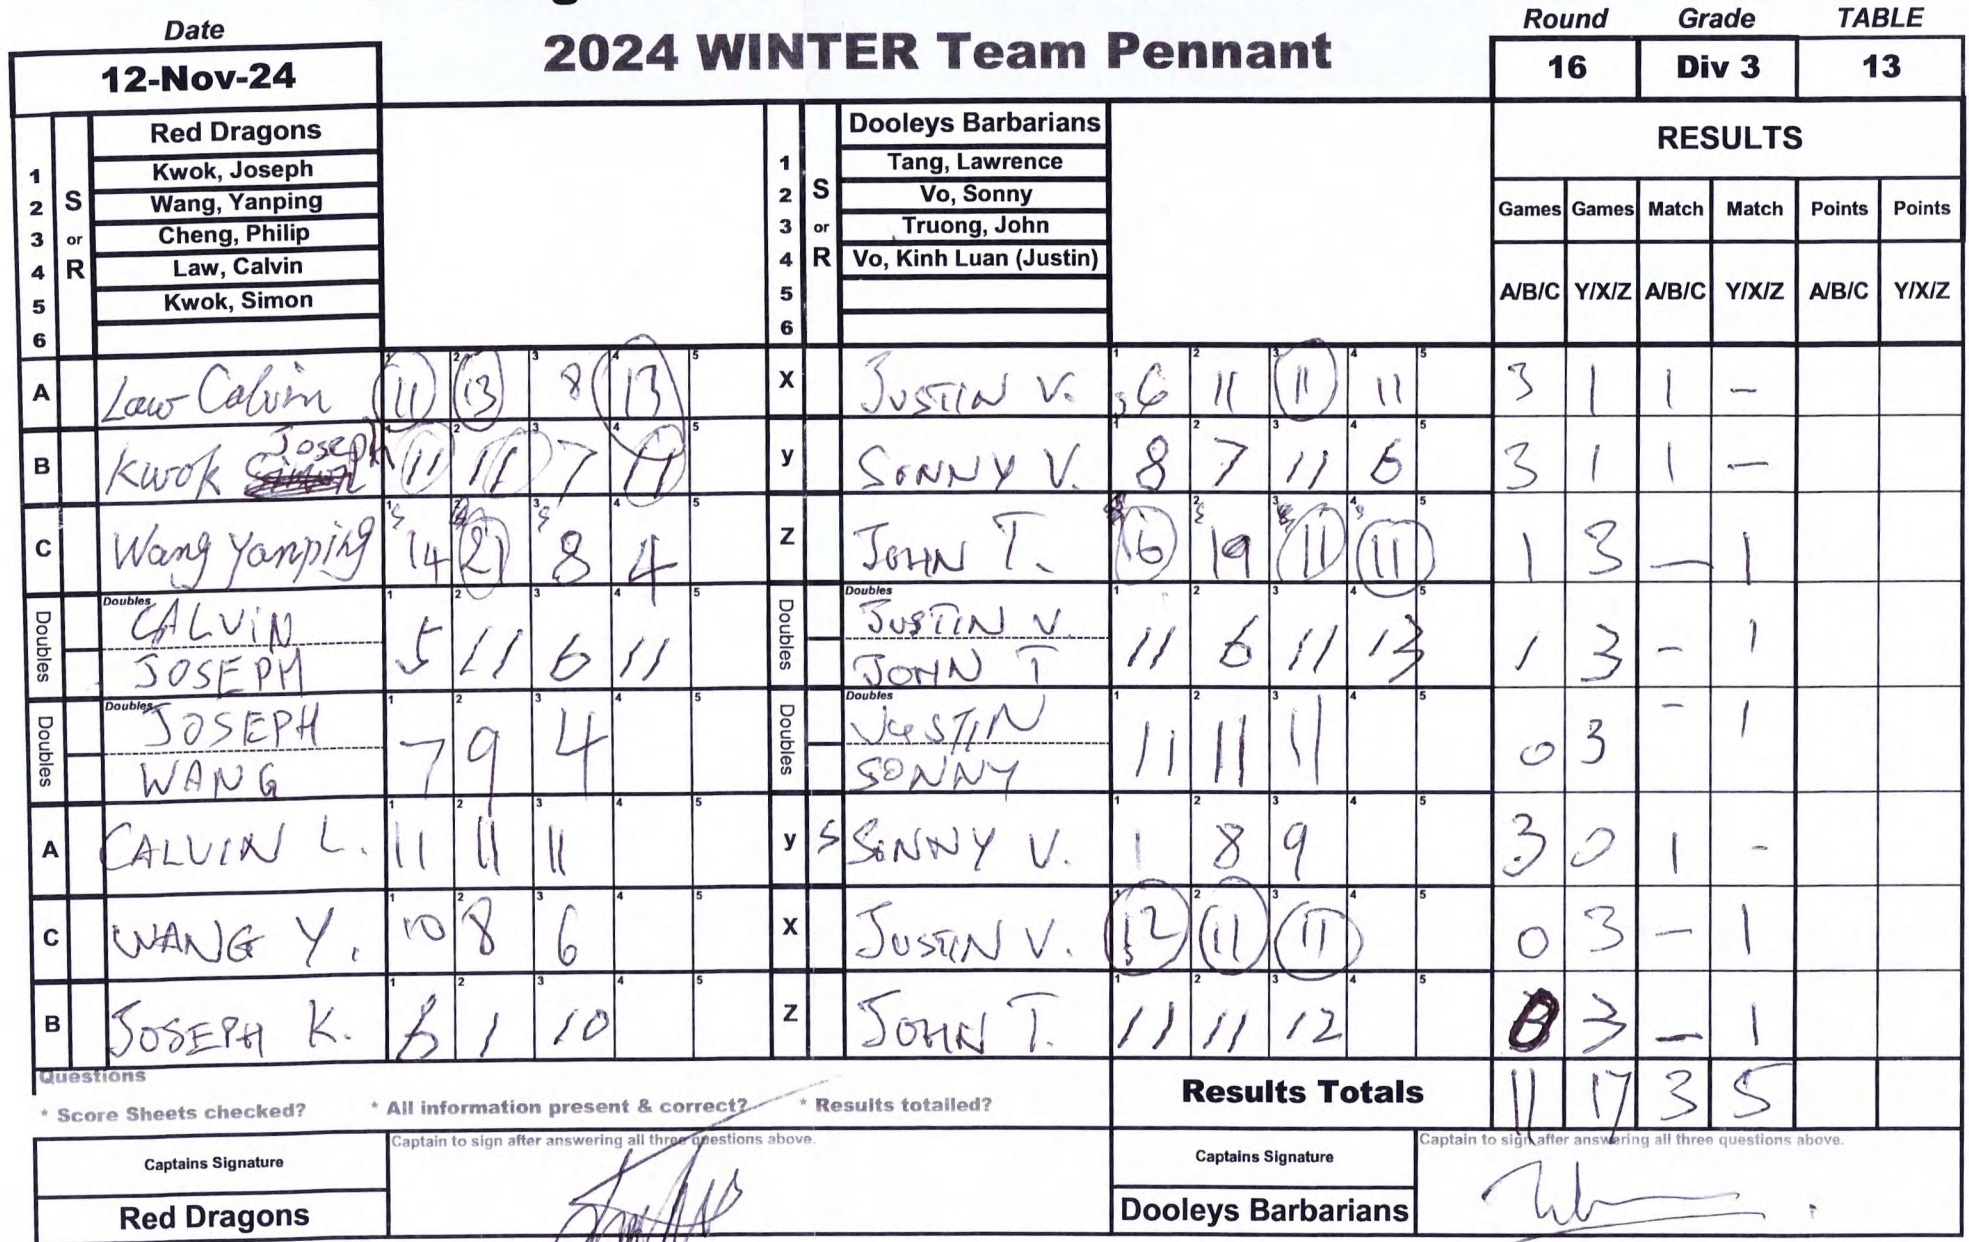 Date
12-Nov-24
2024 WINTER Team Pennant
Round Grade TABLE
16 Div 3 13
1 2 3 4 5 6
S or R
Red Dragons
Kwok, Joseph
Wang, Yanping
Cheng, Philip
Law, Calvin
Kwok, Simon
1 2 3 4 5 6
S or R
Dooleys Barbarians
Tang, Lawrence
Vo, Sonny
Truong, John
Vo, Kinh Luan (Justin)
RESULTS
Games Games Match Match Points Points
A/B/C Y/X/Z A/B/C Y/X/Z A/B/C Y/X/Z
A Law Calvin 1 11 2 13 3 8 4 13 5 X JUSTIN V. 1 6 2 11 3 11 4 11 5 3 1 1 -
B Kwok Joseph 1 11 2 11 3 7 4 11 5 y SONNY V. 1 8 2 7 3 11 4 6 5 3 1 1 -
C Wang Yanping 1 14 2 21 3 8 4 4 5 Z JOHN T. 1 16 2 19 3 11 4 11 5 1 3 - 1
Doubles Doubles CALVIN JOSEPH 1 5 2 11 3 6 4 11 5 Doubles Doubles JUSTIN V. JOHN T 1 11 2 6 3 11 4 13 5 1 3 - 1
Doubles Doubles JOSEPH WANG 1 7 2 9 3 4 4 5 Doubles Doubles JUSTIN SONNY 1 11 2 11 3 11 4 5 0 3 - 1
A CALVIN L. 1 11 2 11 3 11 4 5 y S SONNY V. 1 1 2 8 3 9 4 5 3 0 1 -
C WANG Y. 1 10 2 8 3 6 4 5 X JUSTIN V. 1 12 2 11 3 11 4 5 0 3 - 1
B JOSEPH K. 1 6 2 1 3 10 4 5 Z JOHN T. 1 11 2 11 3 12 4 5 0 3 - 1
Questions
* Score Sheets checked? * All information present & correct? * Results totalled?
Results Totals 11 17 3 5
Captains Signature
Captain to sign after answering all three questions above.
Captains Signature
Captain to sign after answering all three questions above.
Red Dragons
Dooleys Barbarians